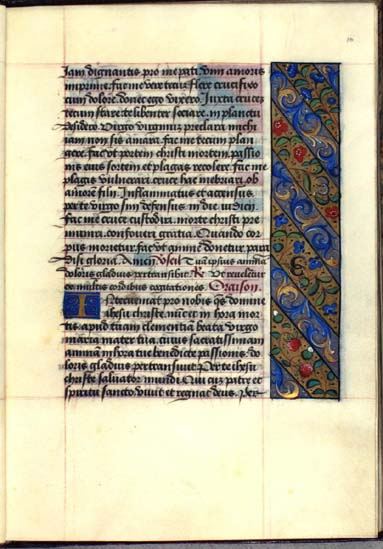 iam dignantis pro me pati vim amoris
imprime. fac me vere tecum flere crucifixo
cum dolore. donec ego vixero. Juxta crucem
tecum stare: te libenter sociare. in planctu
desidero. Virgo virginum preclara michi
iam non sis amara. fac me tecum plan
gere. fac ut portem christi mortem. passio
nis eius sortem et plagas recolere. fac me
plagis vulnerari. cruce hac inebriari. ob
amorem filii. Inflammatus et accensus.
per te virgo sim defensus in die iudicii.
fac me cruce custodiri. morte christi pre
muniri. confoveri gratia. Quando cor
pus morietur. fac ut anime donetur para
disi gloria. Amen Tuam ipsius animam
doloris gladius pertransibit. Ut revelentur
ex multis cordibus cogitationes. Oraison.
Interveniat pro nobis qs domine
ihesu christe. nunc et in hora mor
tis. apud tuam clementiam beata virgo
maria mater tua. cuius sacratissimam
animam in hora tue benedicte passionis. do
loris gladius pertransiuit Per te ihesu
christe saluator mundi. Qui cum patre et
spiritu sancto viuit et regnat deus. per